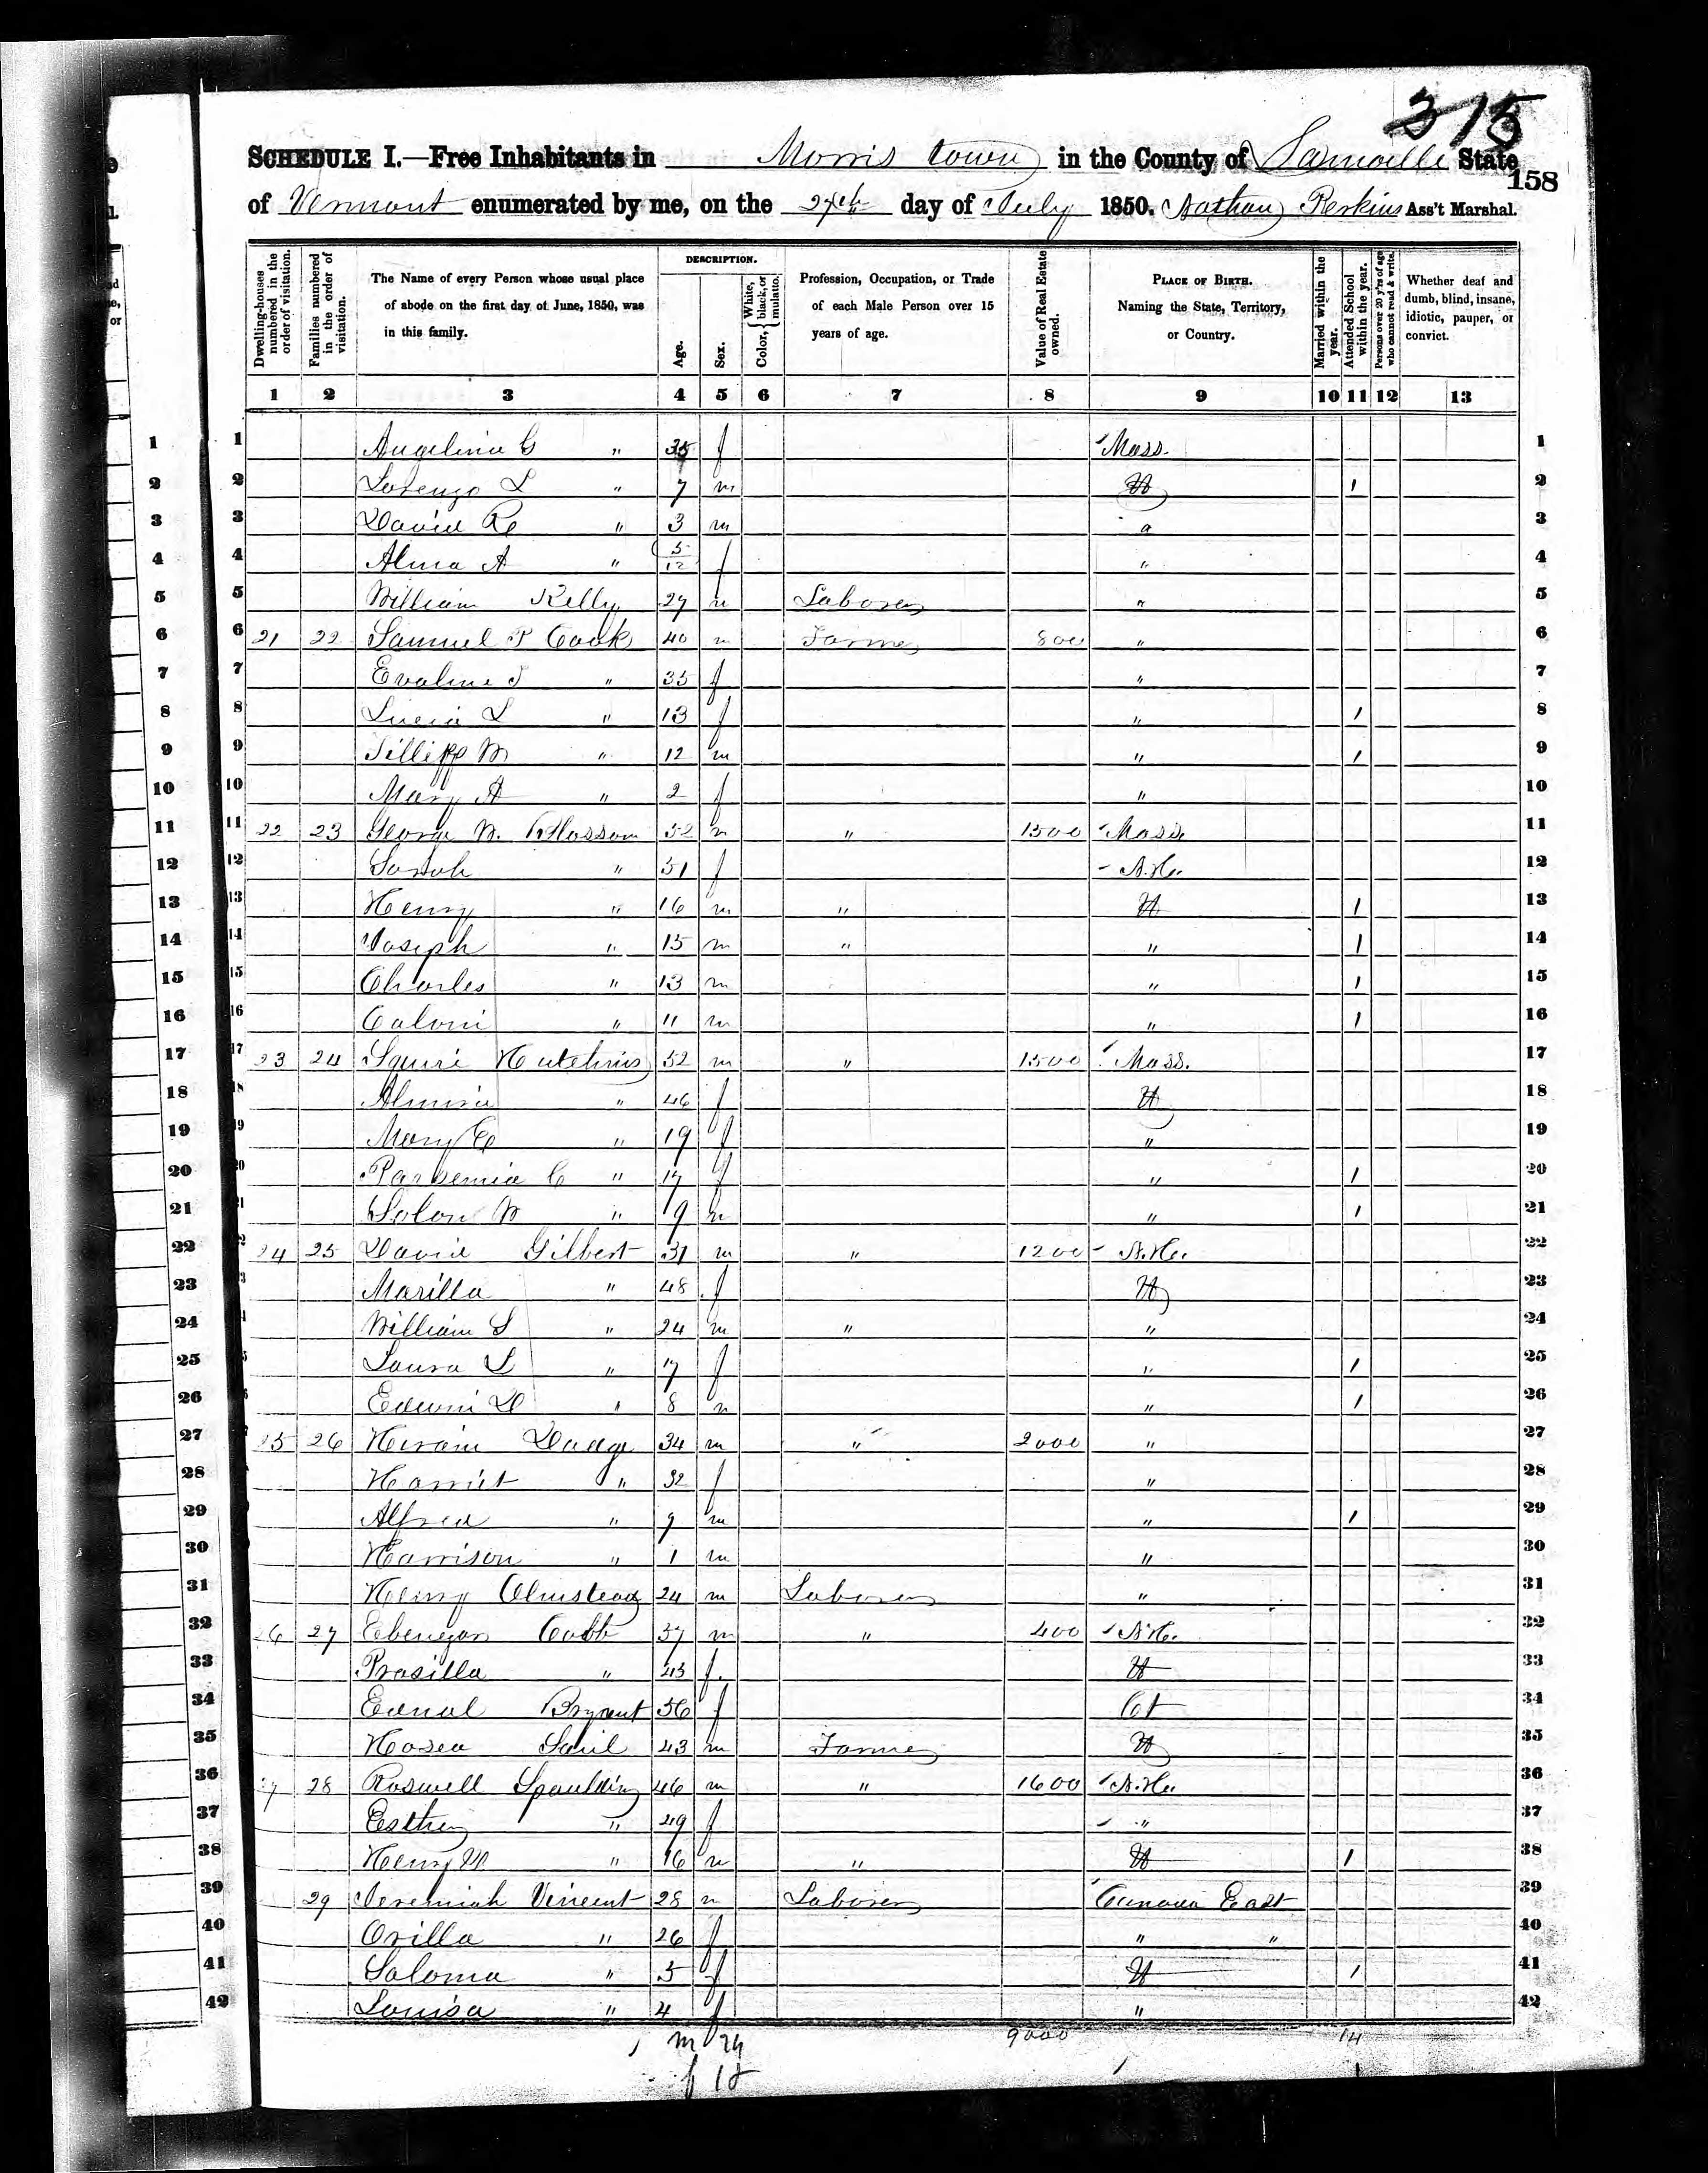 315
SCHEDULE I.—Free Inhabitants in Morris town in the County of Lamoille State
158
of Vermont enumerated by me, on the 27th day of July 1850. Nathan Perkins Ass't Marshal.
Dwelling-houses numbered in the order of visitation.
Families numbered in the order of visitation.
The Name of every Person whose usual place of abode on the first day of June, 1850, was in this family.
DESCRIPTION.
Age.
Sex.
Color, { White, black, or mulatto.
Profession, Occupation, or Trade of each Male Person over 15 years of age.
Value of Real Estate owned.
PLACE OF BIRTH. Naming the State, Territory, or Country.
Married within the year.
Attended School within the year.
Persons over 20 y'rs of age who cannot read & write.
Whether deaf and dumb, blind, insane, idiotic, pauper, or convict.
1 2 3 4 5 6 7 8 9 10 11 12 13
1 Angelina G " 35 f Mass. 1
2 Lorenzo L " 7 m Vt 1 2
3 David R " 3 m " 3
4 Alma A " 5/12 f " 4
5 William Kelly 27 m Laborer " 5
6 21 22 Samuel P Cook 40 m Farmer 800 " 6
7 Evaline T " 35 f " 7
8 Lucia L " 13 f " 1 8
9 M " 12 m " 1 9
10 Mary A " 2 f " 10
11 22 23 George W. Blossom 52 m " 1500 Mass. 11
12 Sarah " 51 f N.H. 12
13 Henry " 16 m " Vt 1 13
14 Joseph " 15 m " " 1 14
15 Charles " 13 m " 1 15
16 Calvin " 11 m " 1 16
17 23 24 Squire Hutchins 52 m " 1500 Mass. 17
18 Almira " 46 f Vt 18
19 Mary E " 19 f " 19
20 Parsemia C " 17 f " 1 20
21 Solon W " 9 m " 1 21
22 24 25 David Gilbert 51 m " 1200 N.H. 22
23 Marilla " 48 f Vt 23
24 William S " 24 m " " 24
25 Laura L " 17 f " 1 25
26 Edwin D " 8 m " 1 26
27 25 26 Hiram Dodge 34 m " 2000 " 27
28 Harriet " 32 f " 28
29 Alfred " 9 m " 1 29
30 Harrison " 1 m " 30
31 Henry Olmstead 24 m Laborer " 31
32 26 27 Ebenezer Cobb 57 m " 400 N.H. 32
33 Prasilla " 43 f Vt 33
34 Bryant 56 f Ct 34
35 Hosea 43 m Farmer Vt 35
36 27 28 Roswell Spaulding 46 m " 1600 N.H. 36
37 Esther " 49 f " 37
38 Henry M " 16 m " Vt 1 38
39 29 Jeremiah Vincent 28 m Laborer Canada East 39
40 Orilla " 26 f " " 40
41 Saloma " 5 f Vt 1 41
42 Louisa " 4 f " 42
m 24 9000 14
f 18